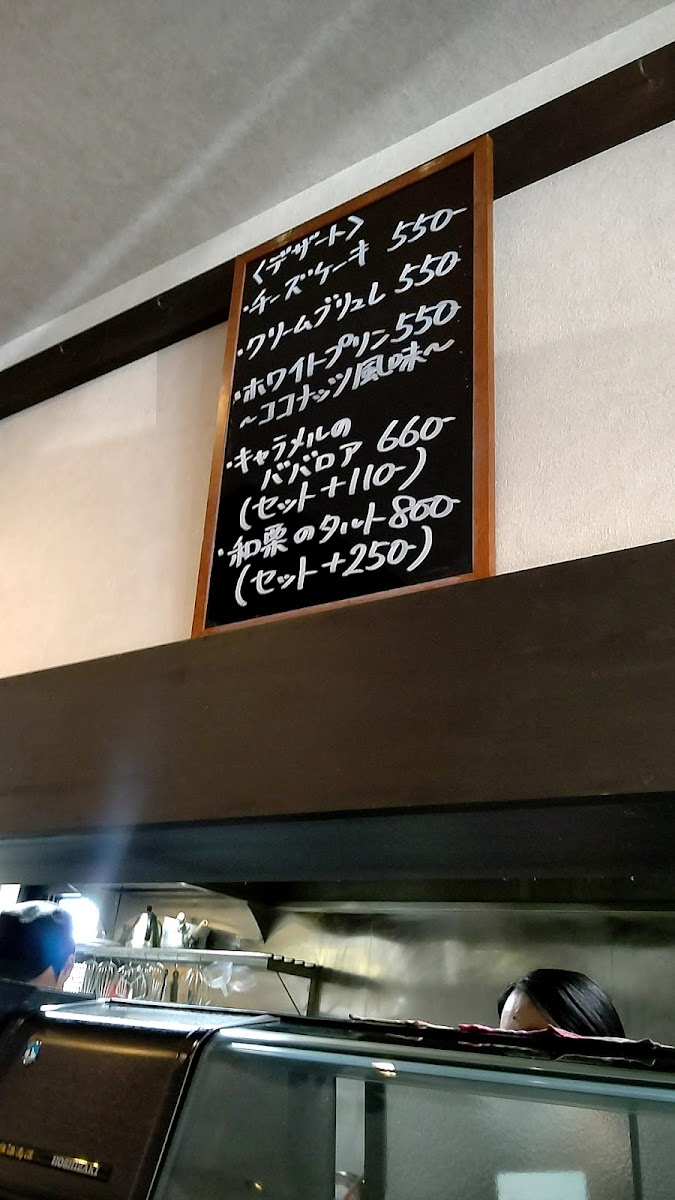 〈デザート〉
・チーズケーキ 550-
・クリームブリュレ 550-
・ホワイトプリン 550-
〜ココナッツ風味〜
・キャラメルの
ババロア 660-
(セット+110-)
・和栗のタルト 800-
(セット+250-)
HOSHIZAKI